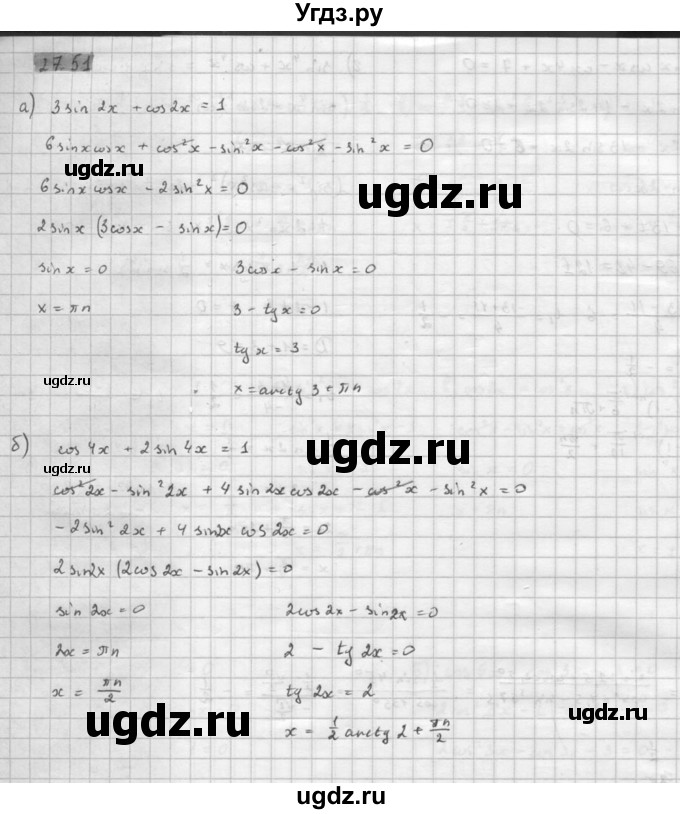 Угдз.ру
27.51
а) 3 sin 2x + cos 2x = 1
6 sin x cos x + cos²x - sin²x - cos²x - sin²x = 0
ugdz.ru
ugdz.ru
6 sin x cos x - 2 sin²x = 0
2 sin x (3 cos x - sin x) = 0
sin x = 0 3 cos x - sin x = 0
x = πn 3 - tg x = 0
tg x = 3
ugdz.ru
x = arctg 3 + πn
ugdz.ru
б) cos 4x + 2 sin 4x = 1
ugdz.ru
ugdz.ru
cos²2x - sin²2x + 4 sin 2x cos 2x - cos²x - sin²x = 0
- 2 sin²2x + 4 sin 2x cos 2x = 0
2 sin 2x (2 cos 2x - sin 2x) = 0
sin 2x = 0 2 cos 2x - sin 2x = 0
2x = πn 2 - tg 2x = 0
x = πn/2 tg 2x = 2
ugdz.ru
ugdz.ru
ugdz.ru
x = 1/2 arctg 2 + πn/2
ugdz.ru